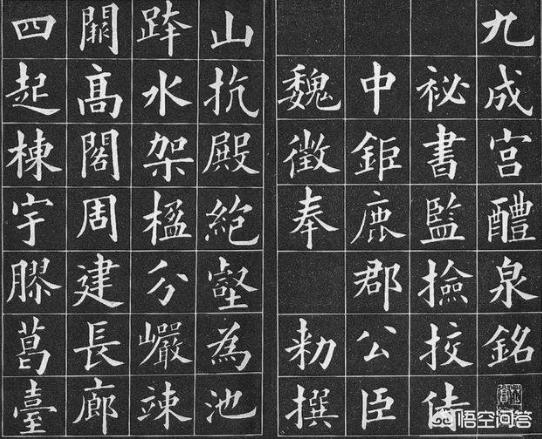 九成宮醴泉銘
祕書監撿挍侍
中鉅鹿郡公臣
魏徵奉 勑撰
山抗殿絕壑為池
跨水架楹分巖竦
闕高閣周建長廊
四起棟宇膠葛臺
悟空问答